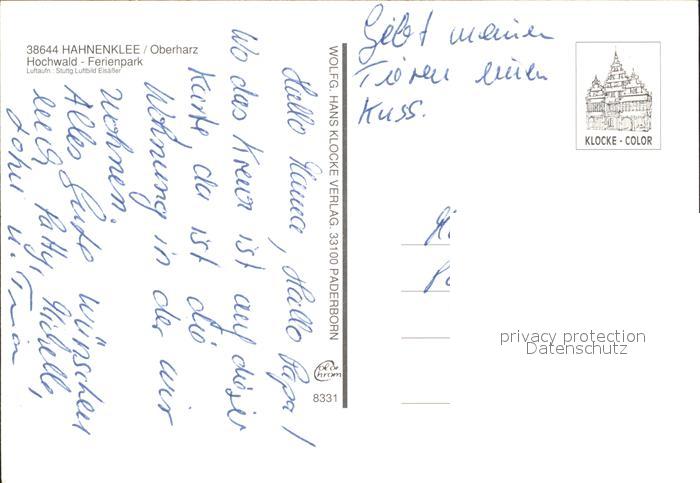 38644 HAHNENKLEE / Oberharz
Hochwald - Ferienpark
Luftaufn.: Stuttg Luftbild Elsäßer
Hallo Mama, Hallo Papa!
Wo das Kreuz ist auf dieser
Karte da ist die
Wohnung in der wir
wohnen.
Alles Gute wünschen
euch Patty, Michelle,
John u. Tina
WOLFG. HANS KLOCKE VERLAG. 33100 PADERBORN
8331
Gebt meinen
Tieren einen
Kuss.
KLOCKE - COLOR
privacy protection
Datenschutz